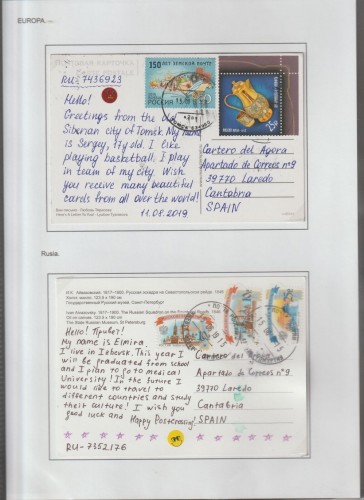 EUROPA.
ПОЧТОВАЯ КАРТОЧКА
RU-7436923
150 ЛЕТ ЗЕМСКОЙ ПОЧТЕ
РОССИЯ
Hello!
Greetings from the old
Siberian city of Tomsk. My name
is Sergey, 17y old. I like
playing basketball. I play
in team of my city. Wish
you receive many beautiful
cards from all over the world!
11.08.2019
Cartero del Agora
Apartado de Correos nº9
39770 Laredo
Cantabria
SPAIN
Rusia.
И.К. Айвазовский. 1817–1900. Русская эскадра на Севастопольском рейде. 1846
Холст, масло. 122,5 x 190 см
Государственный Русский музей. Санкт-Петербург
Ivan Aivazovsky. 1817–1900. The Russian Squadron on the Sebastopol Roads. 1846
Oil on canvas. 122.5 x 190 cm
The State Russian Museum, St Petersburg
Hello! Привет!
My name is Elmira,
I live in Izhevsk. This year I
will be graduated from school
and I plan to go to medical
University! In the future I
would like to travel to
different countries and study
their culture! I wish you
good luck and Happy Postcrossing!
Cartero del Agora
Apartado de Correos nº9
39770 Laredo
Cantabria
SPAIN
RU-7352176